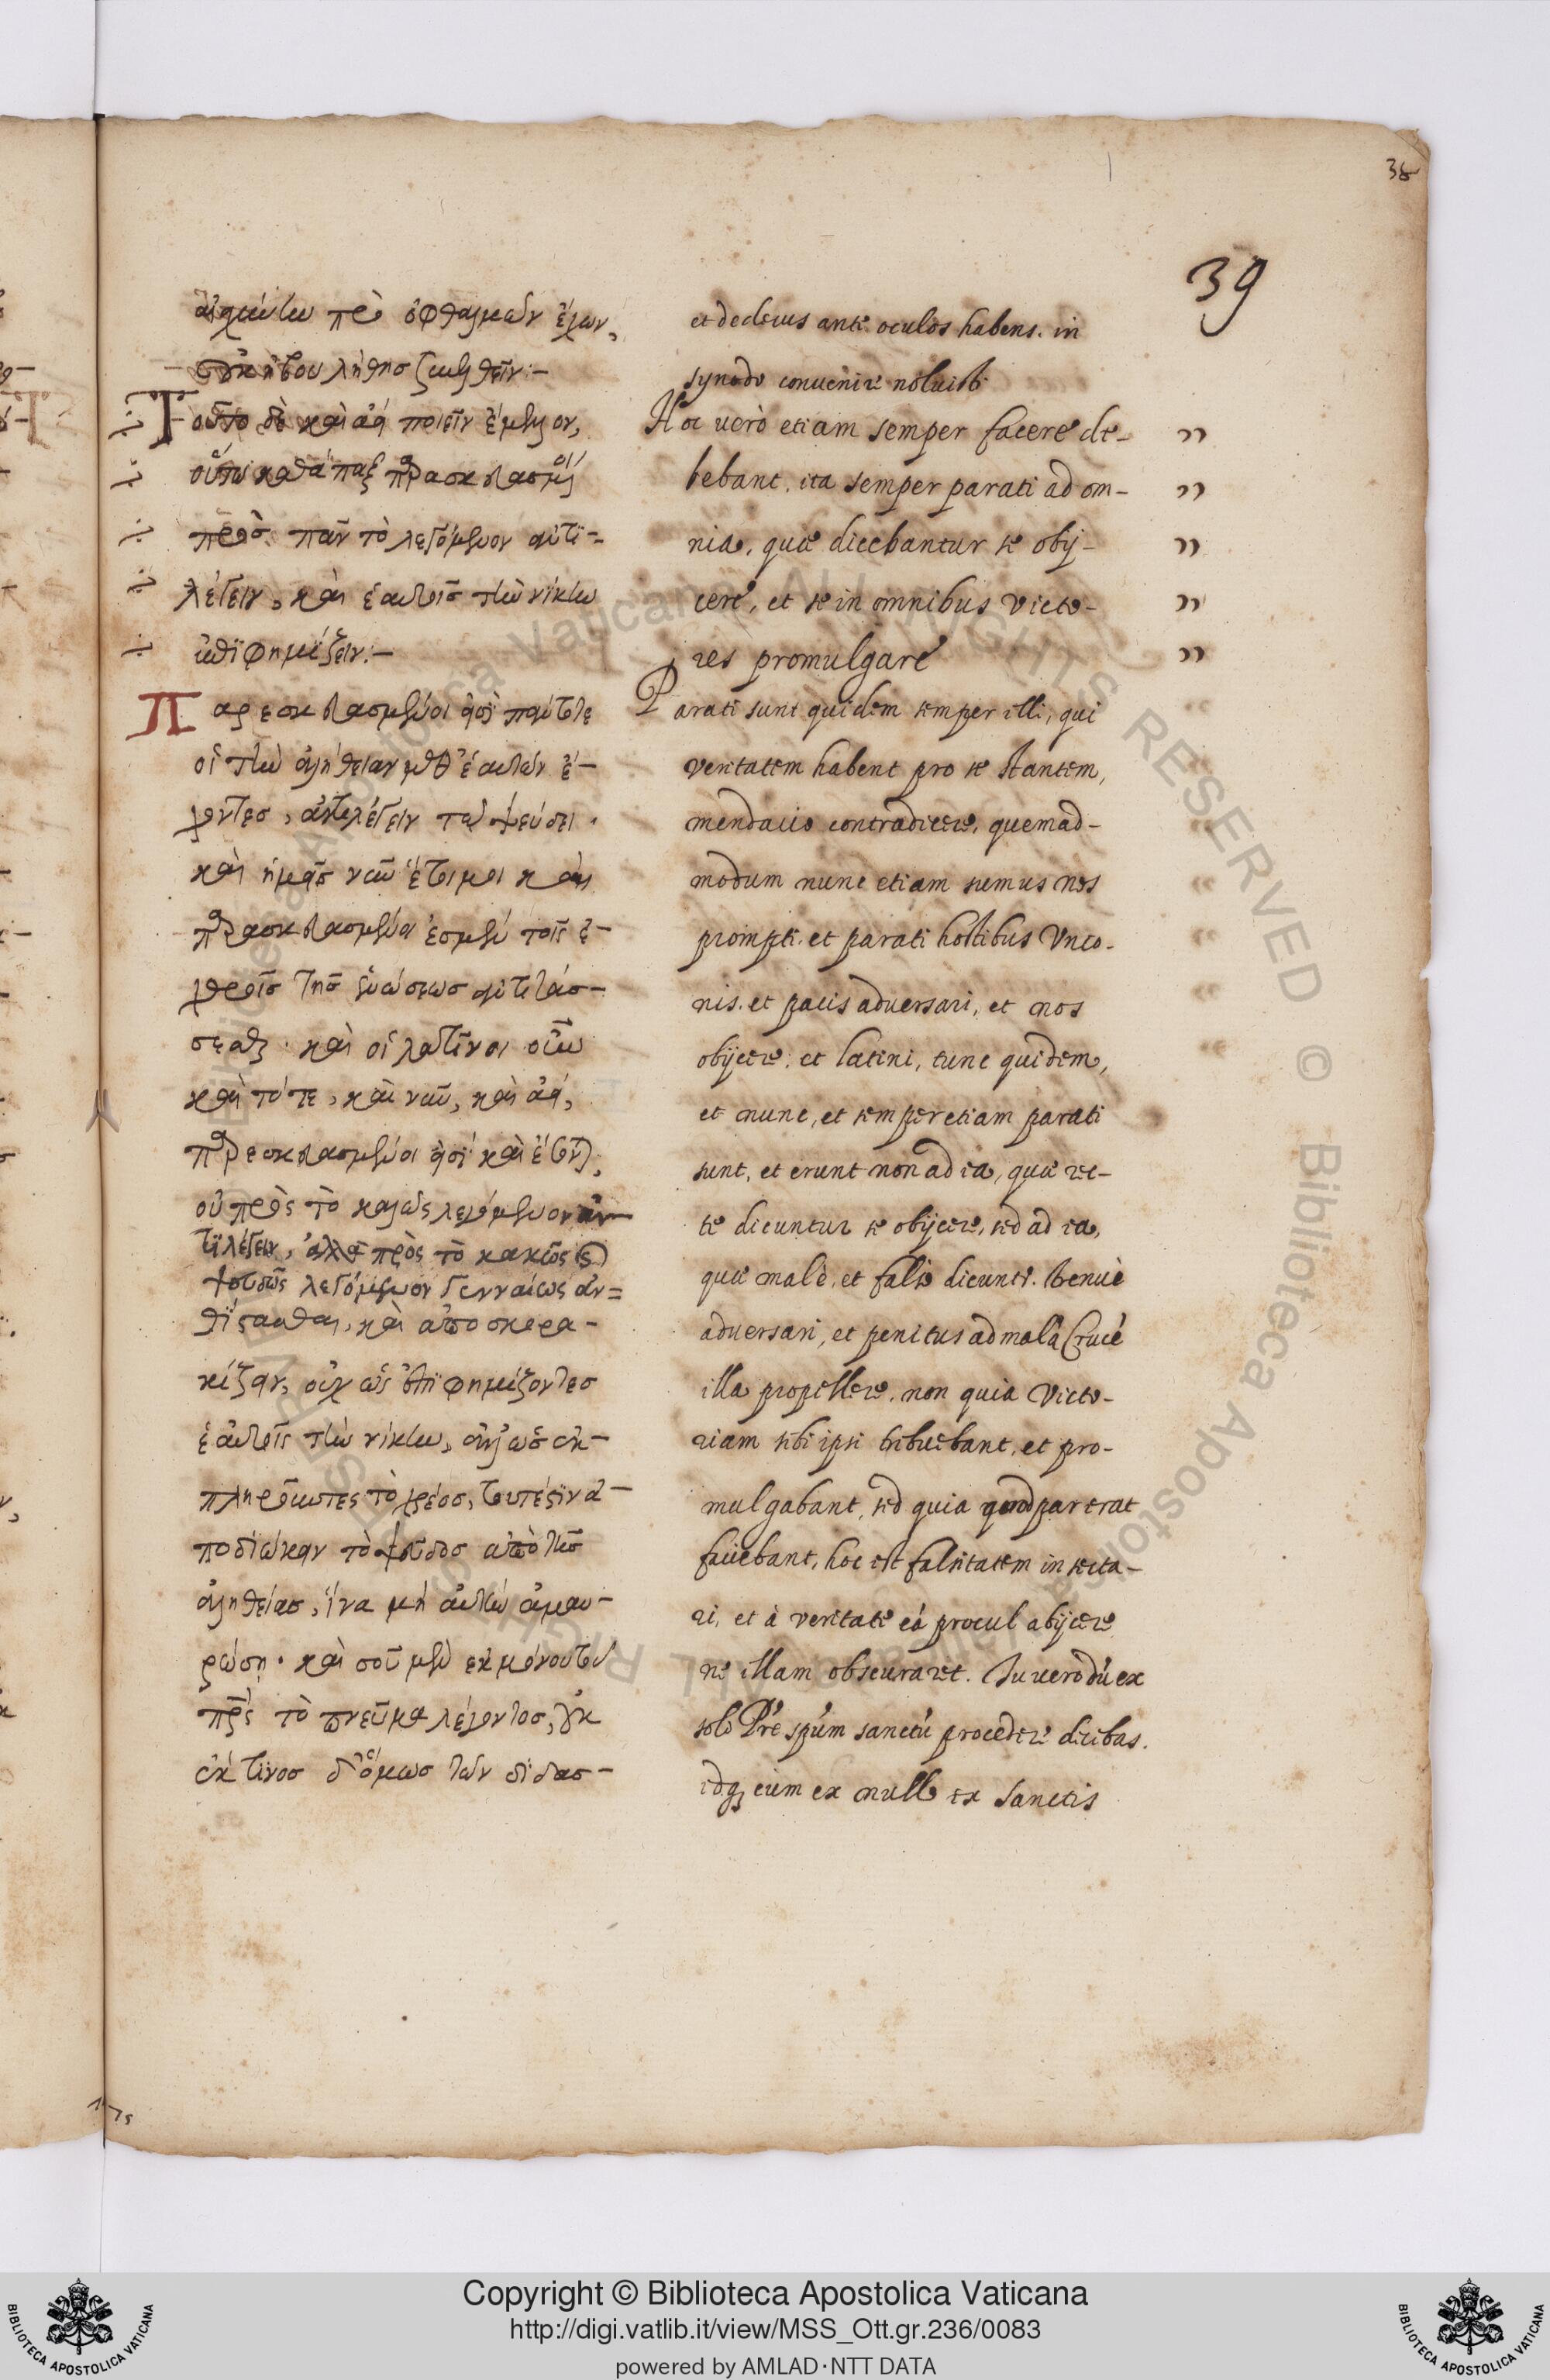 38
39
αἰσχύνην πρὸ ὀφθαλμῶν ἔχων,
οὐκ ἠβουλήθης συνελθεῖν:—
Τοῦτο δὲ καὶ ἀεὶ ποιεῖν ἔμελλον,
οὕτω καθάπαξ παρασκευασμένοι
πρὸς πᾶν τὸ λεγόμενον ἀντι=
λέγειν, καὶ ἑαυτοῖς τὴν νίκην
ἐπιφημίζειν:—
Παρεσκευασμένοι εἰσὶ πάντοτε
οἱ τὴν ἀλήθειαν μεθ' ἑαυτῶν ἔ—
χοντες, ἀντιλέγειν τῷ ψεύδει.
καὶ ἡμεῖς νῦν ἕτοιμοι καὶ
παρασκευασμένοι ἐσμὲν τοῖς ἐ—
χθροῖς τῆς ἑνώσεως ἀντιτάσ—
σεσθαι. καὶ οἱ λατῖνοι οὖν
καὶ τότε, καὶ νῦν, καὶ ἀεὶ,
παρεσκευασμένοι εἰσὶ καὶ ἔσονται,
οὐ πρὸς τὸ καλῶς λεγόμενον ἀν—
τιλέγειν, ἀλλὰ πρὸς τὸ κακῶς καὶ
ψευδῶς λεγόμενον γενναίως ἀν=
θίστασθαι, καὶ ἀποσκορα—
κίζειν, οὐχ ὡς ἐπιφημίζοντες
ἑαυτοῖς τὴν νίκην, ἀλλ' ὡς ἐκ—
πληροῦντες τὸ χρέος, τουτέστιν ἀ—
ποδιώκειν τὸ ψεῦδος ἀπὸ τῆς
ἀληθείας, ἵνα μὴ αὐτὴν ἀμαυ—
ρώσῃ. καὶ σοῦ μὲν ἐκ μόνου τοῦ
πρς τὸ πνεῦμα λέγοντος, οὐκ
ἐκ τινος δ' ὅμως τῶν διδασ—
et dedecus ante oculos habens. in
synodo conuenire noluisti.
Hoc uerò etiam semper facere de-
bebant. ita semper parati ad om-
nia, quæ dicebantur se obij-
cere, et se in omnibus Victo-
res promulgare
Parati sunt quidem semper illi, qui
veritatem habent pro se stantem,
mendacio contradicere, quemad-
modum nunc etiam sumus nos
prompti. et parati hostibus Vnio-
nis. et pacis adversari, et nos
obijcere. et Latini, tunc quidem,
et nunc, et semper etiam parati
sunt, et erunt non ad ea, quæ rec-
te dicuntur se obijcere, sed ad ea,
quæ malè, et falso dicuntr. strenuè
adversari, et penitus ad malã Crucẽ
illa propellere. non quia Victo-
riam sibi ipsi tribuebant, et pro-
mulgabant, sed quia quod par erat
faciebant, hoc est falsitatem insecta-
ri, et à veritate eã procul abijcere
ne illam obscuraret. Tu vero dũ ex
solo Pre spũm sanctũ procedere dicebas.
idq; cum ex nullo ex Sanctis